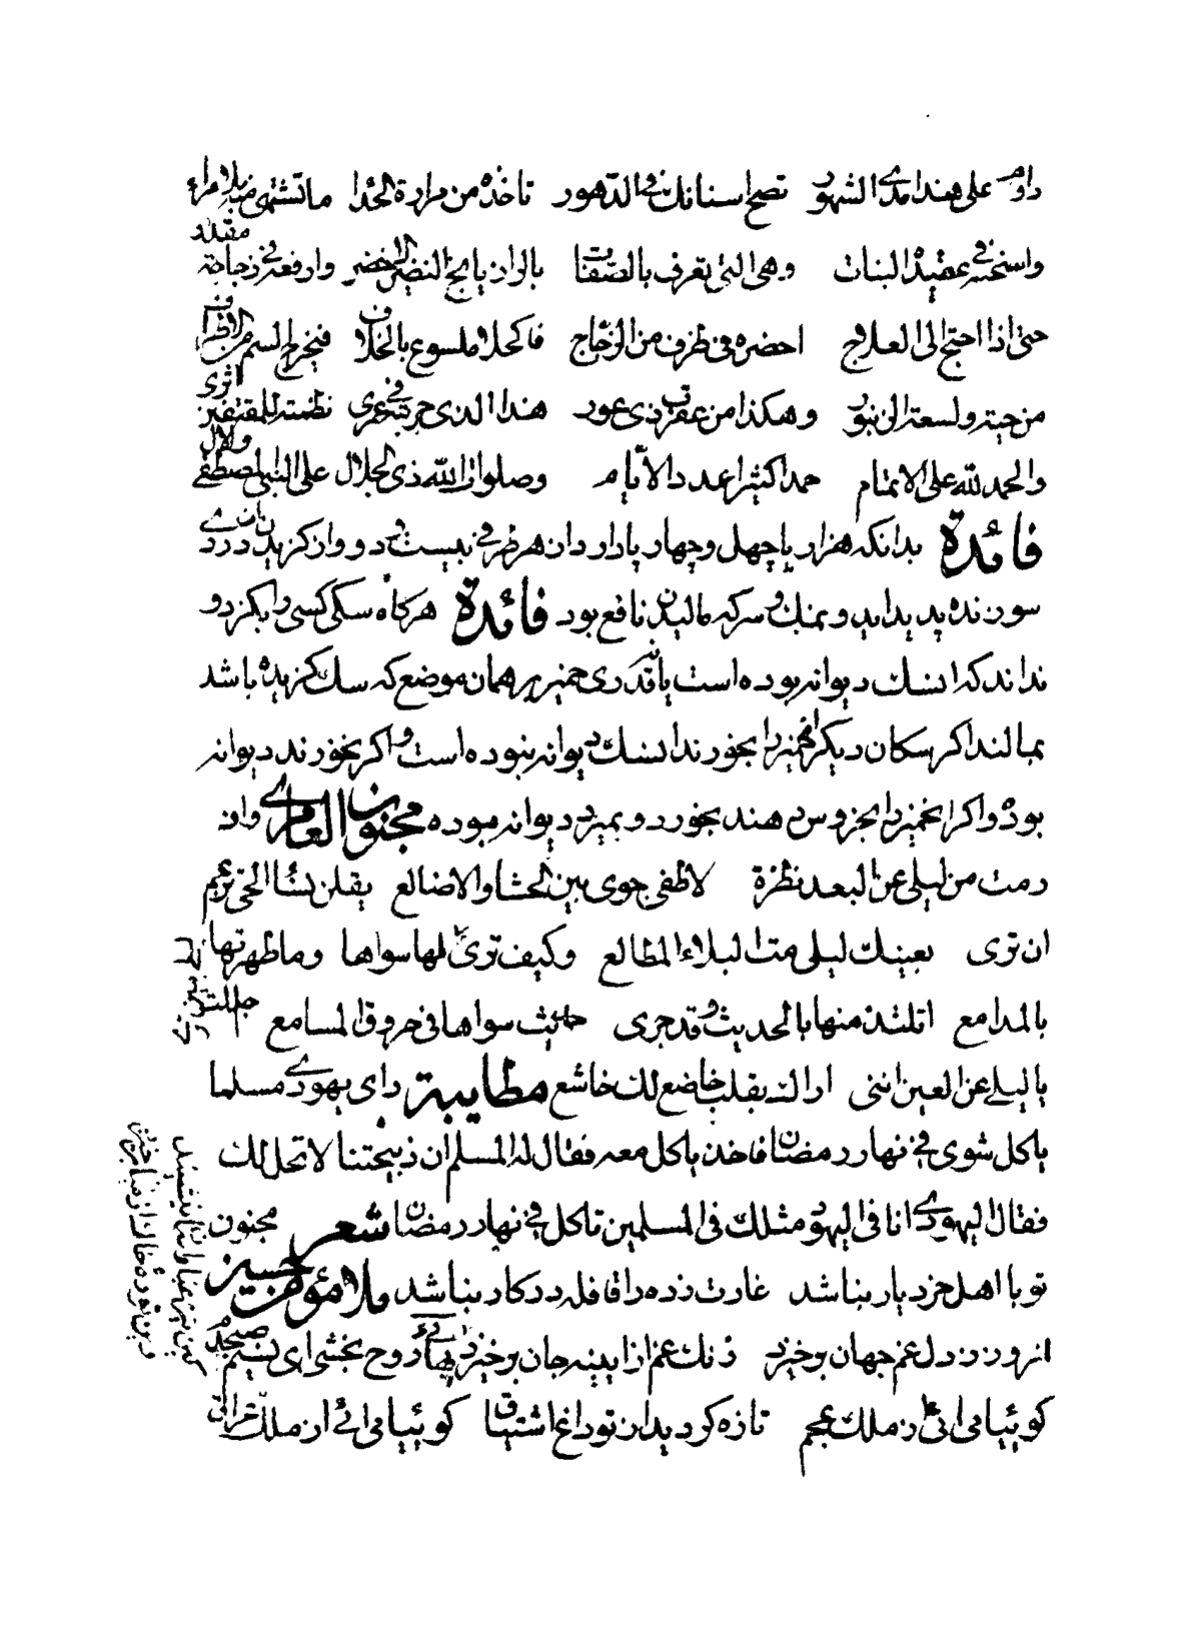 داوم على هذا مدى الشهور تصح اسنانك في الدهور تاخذه من مرارة الحدا ما تشتهى
واسخنه في عقيد النبات وهى التى تعرف بالصفات بالرازيانج النضير الاخضر وارفعه في زجاجة
حتى اذا احتج الى العلاج احضره في ظرف من الزجاج فاكحل لملسوع بالخلاف فيخرج السم من الاطراف
من حية ولسعة الزنبور وهكذا من عقرب ذى عور هذا الذى جربته في عمرى نظمته للمقتفين اثرى
والحمد لله على الاتمام حمدا كثيرا عدد الايام وصلوات الله ذى الجلال على النبى المصطفى والال
فائدة بدانكه هزار پا چهل وچهار پا دارد از هر طرفى بيست ودو واز كزيدن او دردى
سوزنده پديد ايد ونمك وسركه ماليدن نافع بود فائدة هركاه سكى كسى را بكزد و
نداند كه ان سك ديوانه بوده است يا نه قدرى خمير بر همان موضع كه سك كزيده باشد
بمالند اكر سكان ديكر ان خمير را بخورند ان سك ديوانه نبوده است واكر نخورند ديوانه
بوده واكر ان خمير را بخروس دهند بخورد وبميرد ديوانه بوده مجنون العامرى وان
رمت من ليلى عن البعد نظرة لاطفى جوى بين الحشا والاضالع يقلن نساء الحى تزعم
ان ترى بعينك ليلى مت البلاء المطالع وكيف ترى ليلى بها سواها وما طهرتها
بالمدامع اتلتذ منها بالحديث وقد جرى حديث سواها في خروق المسامع
يا ليلى عن العين اننى اراك بقلب خاضع لك خاشع مطايبة راى يهودى مسلما
ياكل شوى في نهار رمضان فاخذ ياكل معه فقال له المسلم ان ذبيحتنا لا تحل لك
فقال اليهودى انا في اليهود مثلك في المسلمين تاكل في نهار رمضان شعر مجنون
تو با اهل خرد يار نباشد غارت زده را قافله در كار نباشد ملا مؤمن حسين
ان روز كه از دل غم جهان برخيزد زنك غم از اينه جان برخيزد روح بخشى اى نسيم صبحدم
كوئيا مى ائى از ملك عجم تازه كرديد از تو داغ اشتياق كوئيا مى ائى از ملك عراق